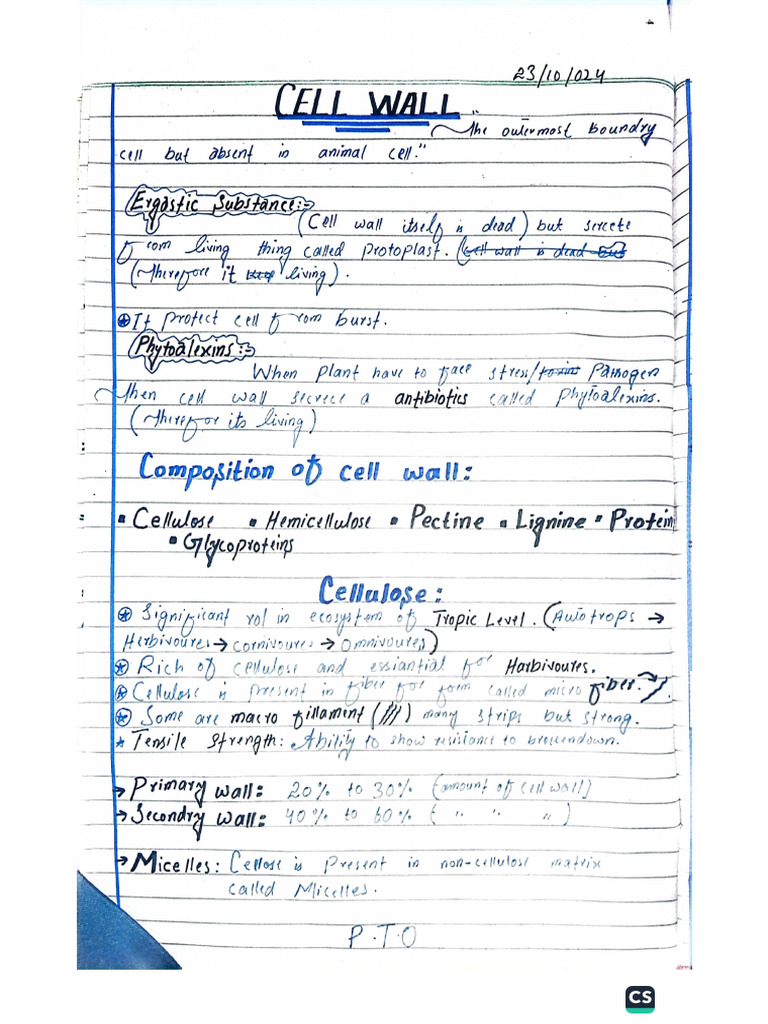 23/10/024
CELL WALL
"The outermost boundry
cell but absent in animal cell."
Ergastic Substance:-
(Cell wall itself is dead) but sercete
from living thing called protoplast. (Cell wall is dead but
(therefore it living).
It protect cell from burst.
Phytoalexins:-
When plant have to face stress/toxins Pathogen
then cell wall secrece a antibiotics called phytoalexins.
(therefor its living)
Composition of cell wall:
▪ Cellulose ▪ Hemicellulose ▪ Pectine ▪ Lignine ▪ Protein
▪ Glycoproteins
Cellulose:
Significant rol in ecosystem of Tropic Level. (Autotrops →
Herbivoures → cornivoures → Omnivoures)
Rich of cellulose and essiantial for Harbivoures.
Cellulose is present in fiber for form called micro fiber.
Some are macro fillament (///) many strips but strong.
* Tensile Strength: Ability to show resistance to breakendown.
→ Primary wall: 20% to 30% (amount of cell wall)
→ Secondry wall: 40% to 60% ( " " " )
→ Micelles: Cellose is present in non-cellulose matrix
called Micelles.
P.T.O
CS